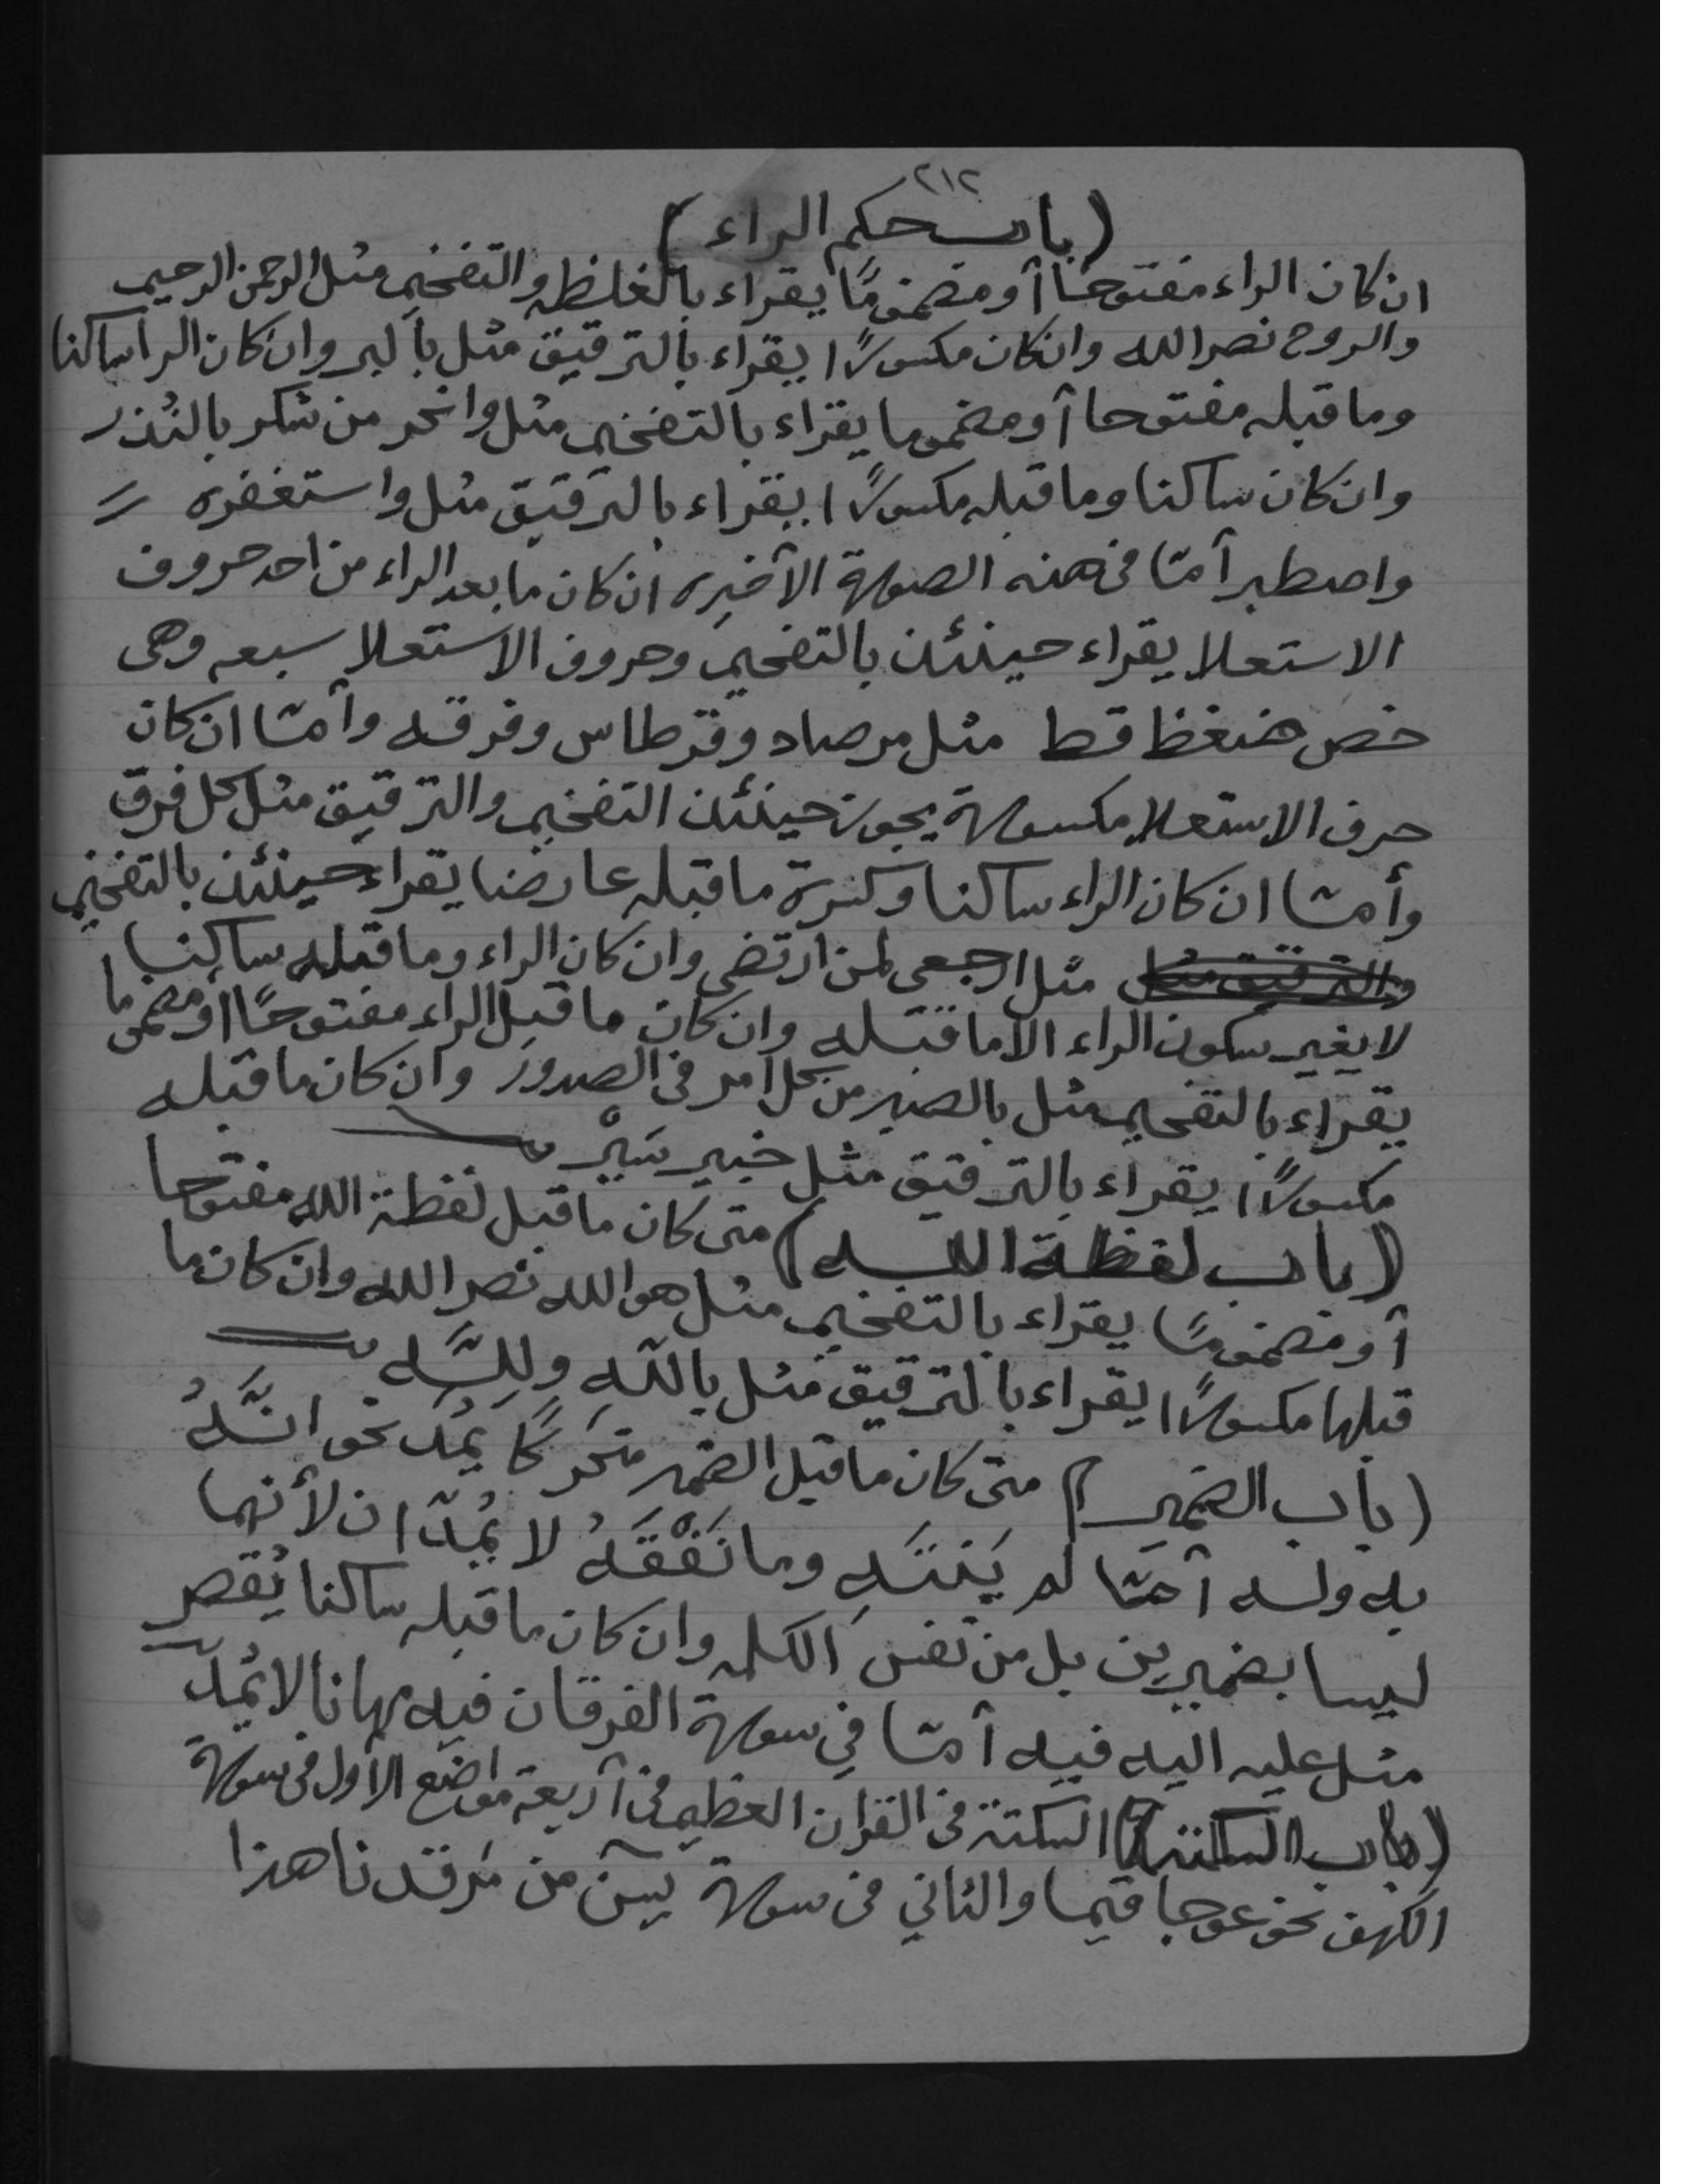 ٢١٢
(باب حكم الراء)
ان كان الراء مفتوحا أو مضمومًا يقراء بالغلظه والتفخيم مثل الرحمن الرحيم
والروح نصر الله وان كان مكسورًا يقراء بالترقيق مثل بالبر وان كان الرا ساكنا
وما قبله مفتوحا أو مضموما يقراء بالتفخيم مثل وانحر من شكر بالنُذر
وان كان ساكنا وما قبله مكسورًا يقراء بالترقيق مثل واستغفره
واصطبر أمّا في هذه الصورة الأخيره ان كان ما بعد الراء من احد حروف
الاستعلا يقراء حينئذ بالتفخيم وحروف الاستعلا سبعه وهى
خص ضغظ قط مثل مرصاد وقرطاس وفرقه وأمّا ان كان
حرف الاستعلا مكسورة يجوز حينئذ التفخيم والترقيق مثل كل فرق
وأمّا ان كان الراء ساكنا وكسرة ما قبله عارضا يقراء حينئذ بالتفخيم
والترقيق مثل مثل ارجعى لمن ارتضى وان كان الراء وما قبله ساكنا
لا يغير سكون الراء الا ما قبله وان كان ما قبل الراء مفتوحًا أو مضموما
يقراء بالتفخيم مثل بالصبر من كل أمر فى الصدور وان كان ما قبله
مكسورًا يقراء بالترقيق مثل خبير سَيْر
(باب لفظة الله) متى كان ما قبل لفظة الله مفتوحا
أو مضمومًا يقراء بالتفخيم مثل هو الله نصر الله وان كان ما
قبلها مكسورًا يقراء بالترقيق مثل بالله ولِلَّه
(باب الضمير) متى كان ما قبل الضمير متحركًا يُمدّ نحو انَّهُ
به وله أمّا لم يَنْتَهِ وما نَفْقَهُ لا يُمدّان لأنهما
ليسا بضميرين بل من نفس الكلمه وان كان ما قبله ساكنا يُقصر
مثل عليه اليه فيه أمّا في سورة الفرقان فيه مهانا لا يُمدّ
(باب السكتة) السكتة فى القران العظيم فى أربعة مواضع الاول فى سورة
الكهف نحو عوجا قيما والثاني فى سورة يسٓ من مَرقدنا هذا